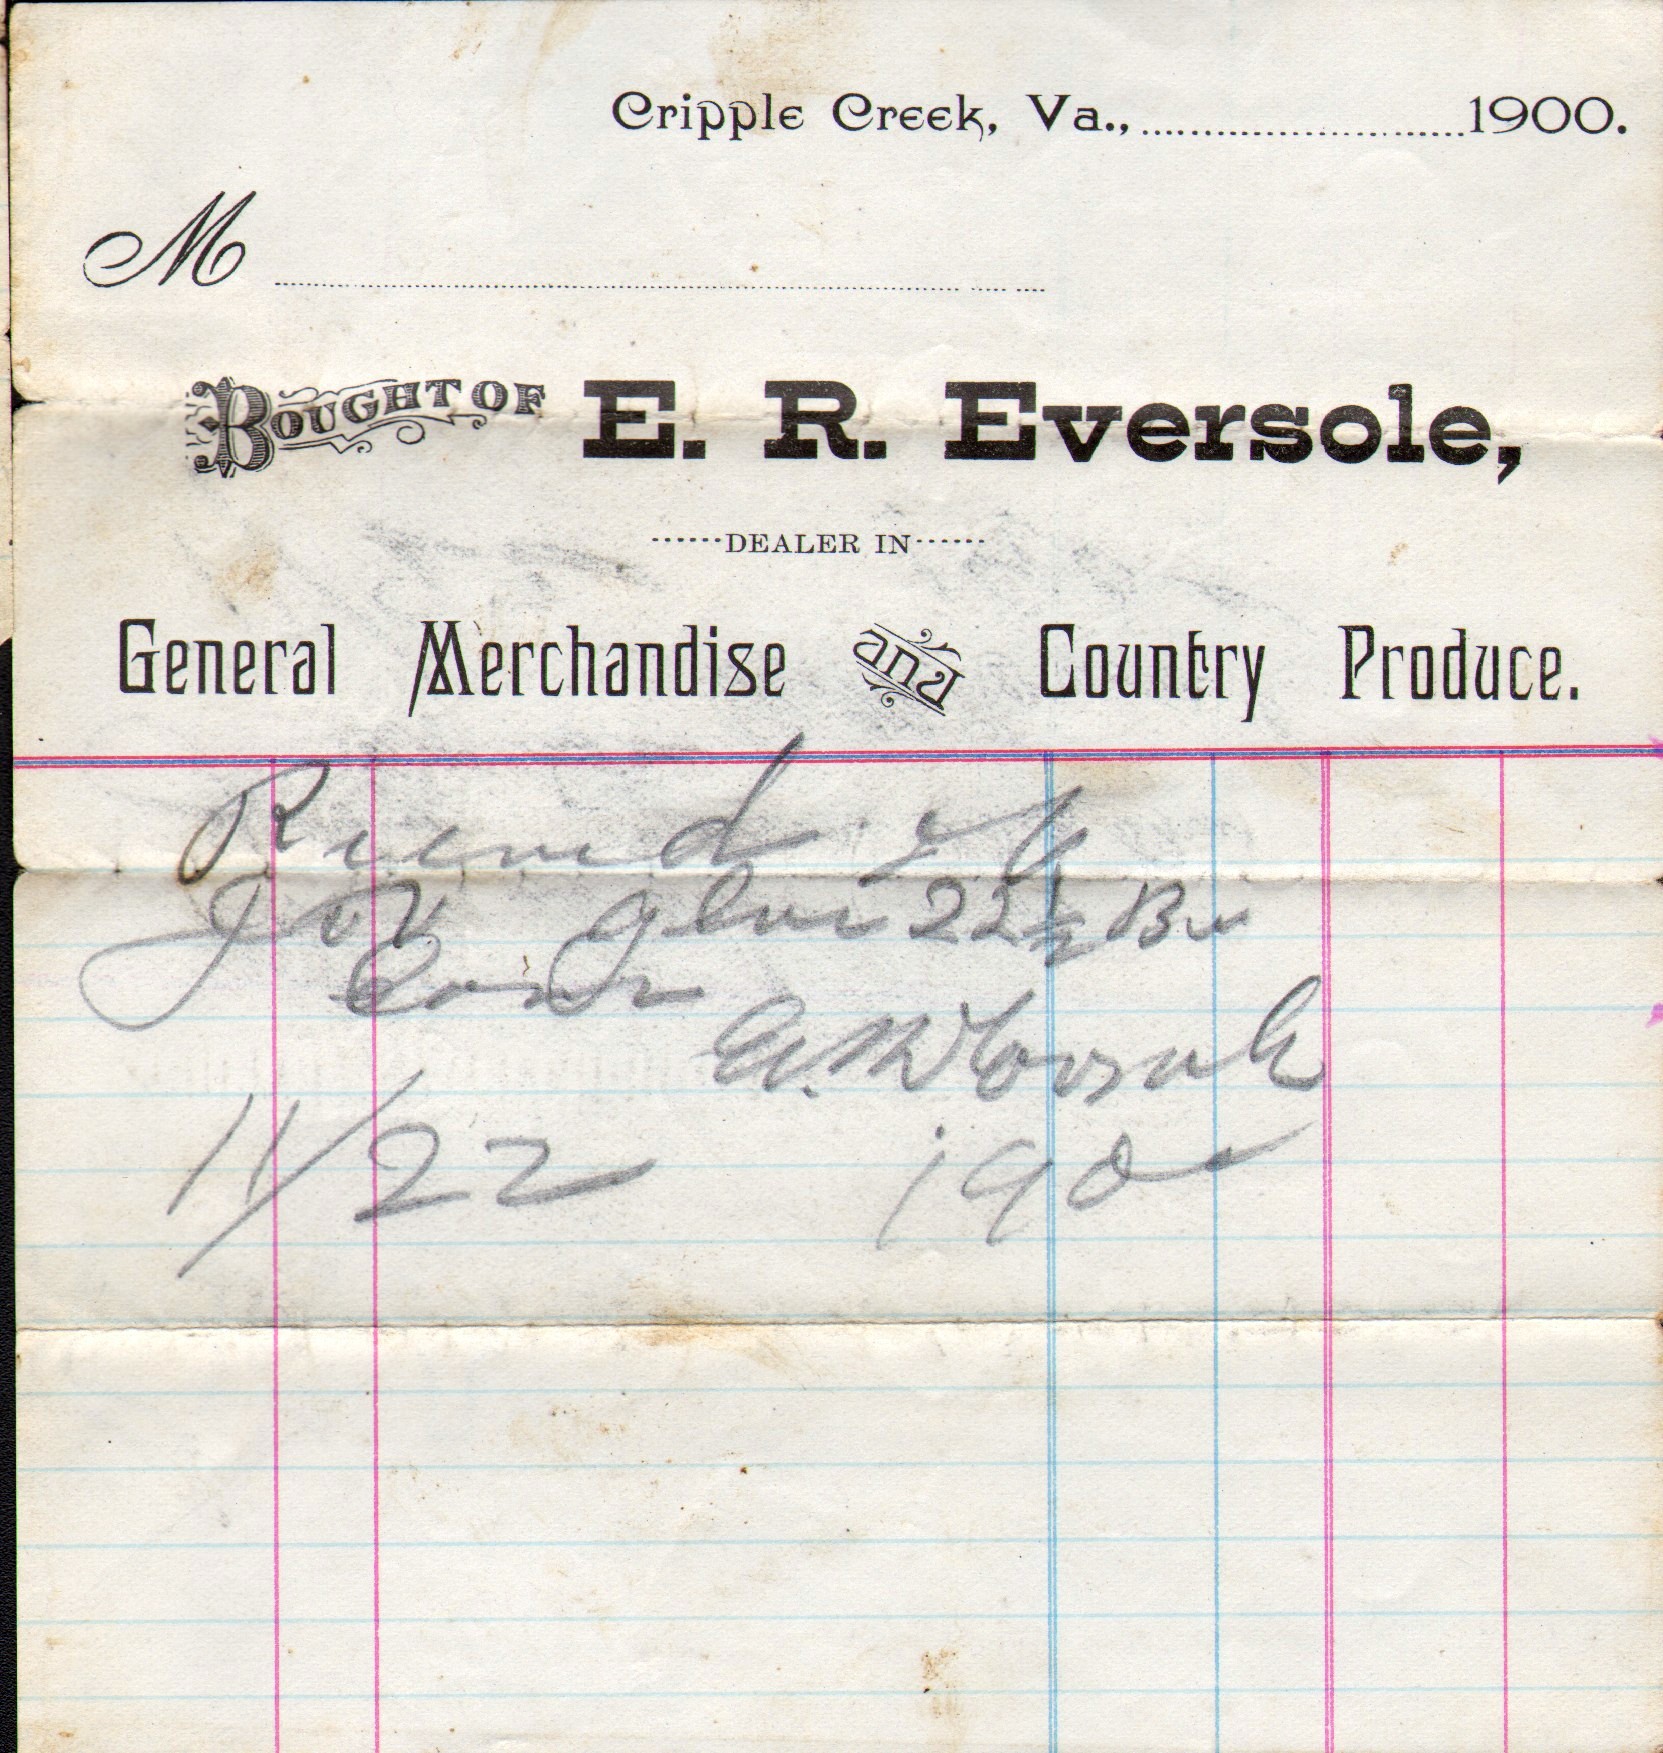 Cripple Creek, Va., 1900.
M
BOUGHT OF E. R. Eversole,
DEALER IN
General Merchandise and Country Produce.
Received
22 1/2 Bu
Corn
11/22 1900